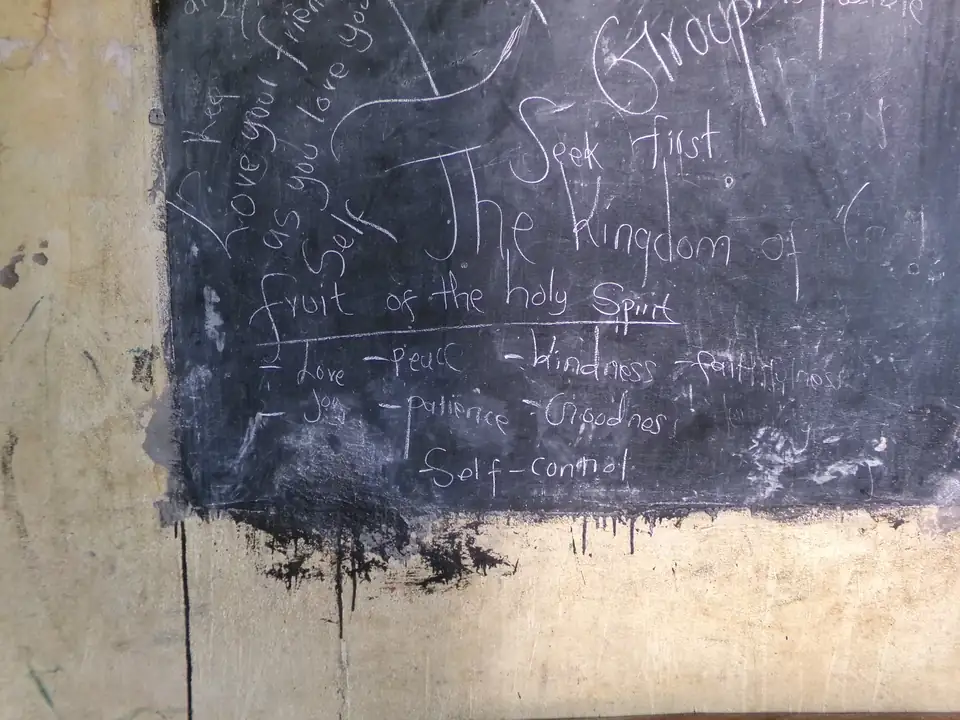 Group
Keep
Love your friend
as you love you
Self
Seek first
The kingdom of God
fruit of the holy Spirit
- Love - peace - kindness - faithfulness
- Joy - patience - Goodnes
Self-control